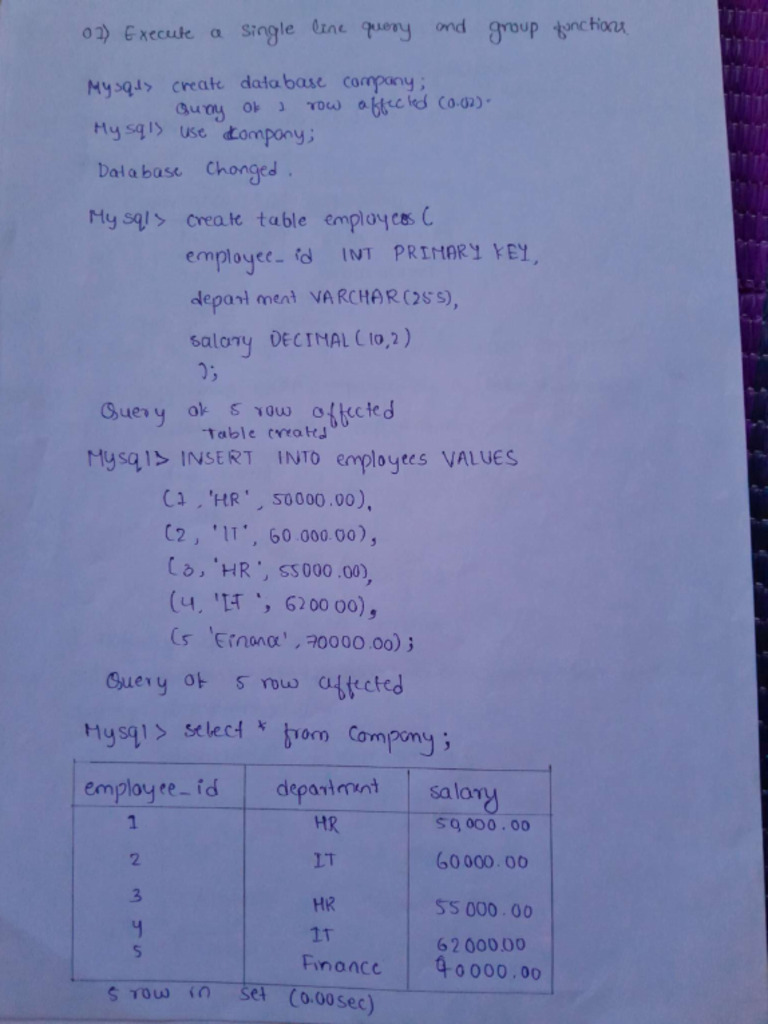 07) Execute a single line query and group functions
Mysql> create database company;
Query ok 1 row affected (0.02).
Mysql> use company;
Database Changed.
Mysql> create table employees (
employee_id INT PRIMARY KEY,
department VARCHAR(255),
salary DECIMAL(10,2)
);
Query ok 5 row affected
Table created
Mysql> INSERT INTO employees VALUES
(1, 'HR', 50000.00),
(2, 'IT', 60.000.00),
(3, 'HR', 55000.00),
(4, 'IT', 6200 00),
(5 'Finance', 70000.00);
Query ok 5 row affected
Mysql> select * from Company;
employee_id department salary
1 HR 50,000.00
2 IT 60000.00
3 HR 55000.00
4 IT 62000.00
5 Finance 70000.00
5 row in set (0.00sec)